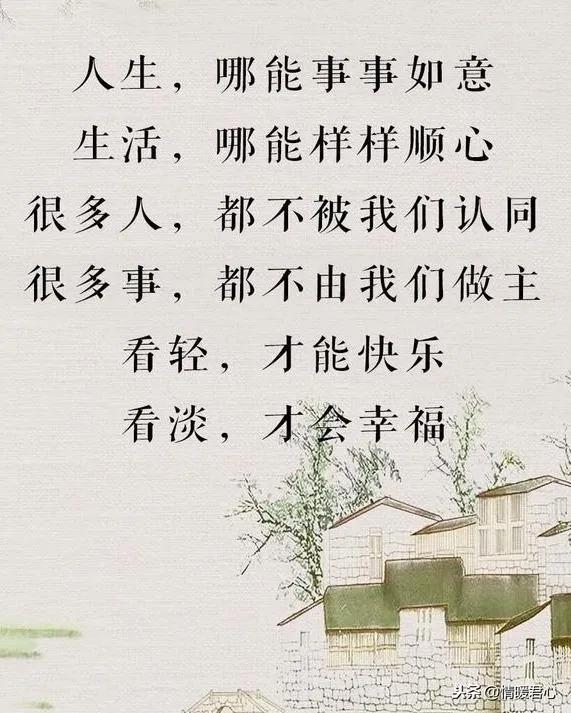 人生，哪能事事如意
生活，哪能样样顺心
很多人，都不被我们认同
很多事，都不由我们做主
看轻，才能快乐
看淡，才会幸福
头条@情暖君心